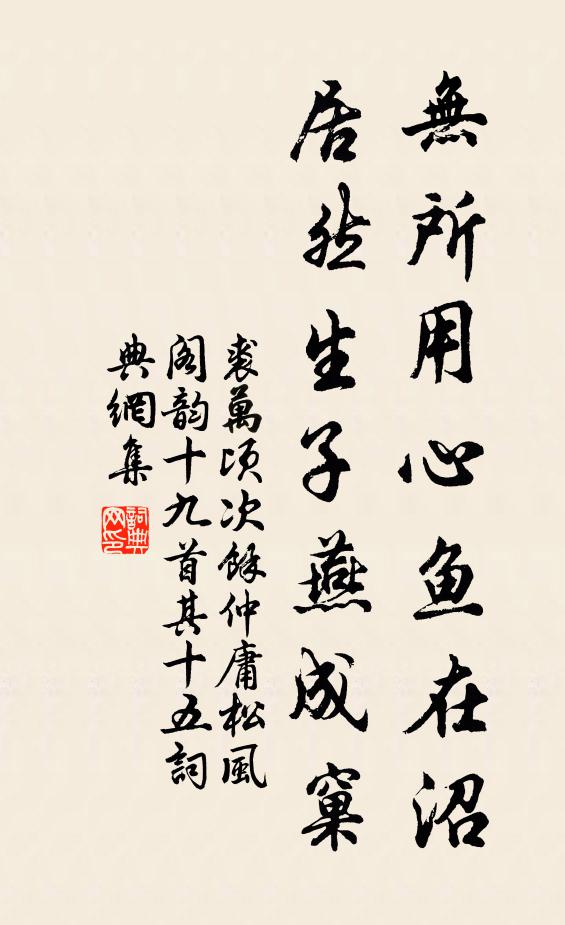 無所用心鱼在沼
居然生子燕成窠
裘萬顷次餘仲庸松風
阁韵十九首其十五詞
典網集
詞典
网印